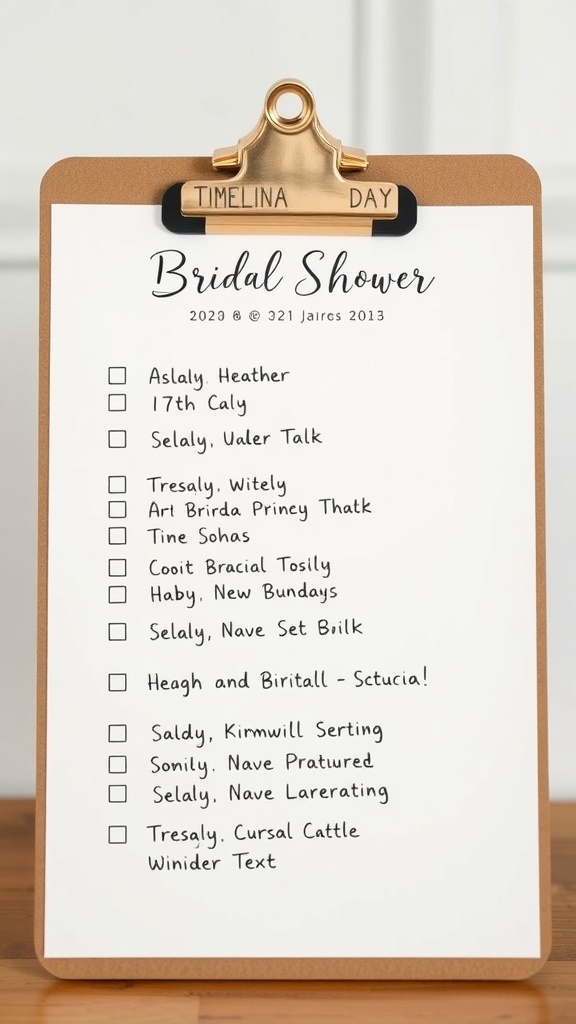 TIMELINA DAY
Bridal Shower
2023 @ 321 2013
Aslaly. Heather
17th Caly
Selaly, Ualer Talk
Tresaly. Witely
Art Brirda Princy Thatk
Tine Sohas
Cooit Bracial Tosily
Haby. New Bundays
Selaly, Nave Set Boilk
Heagh and Biritall - Sctucia!
Saldy, Kirmwill Serting
Sonily. Nave Pratured
Selaly, Nave Larerating
Tresaly. Cursal Cattle
Winider Text